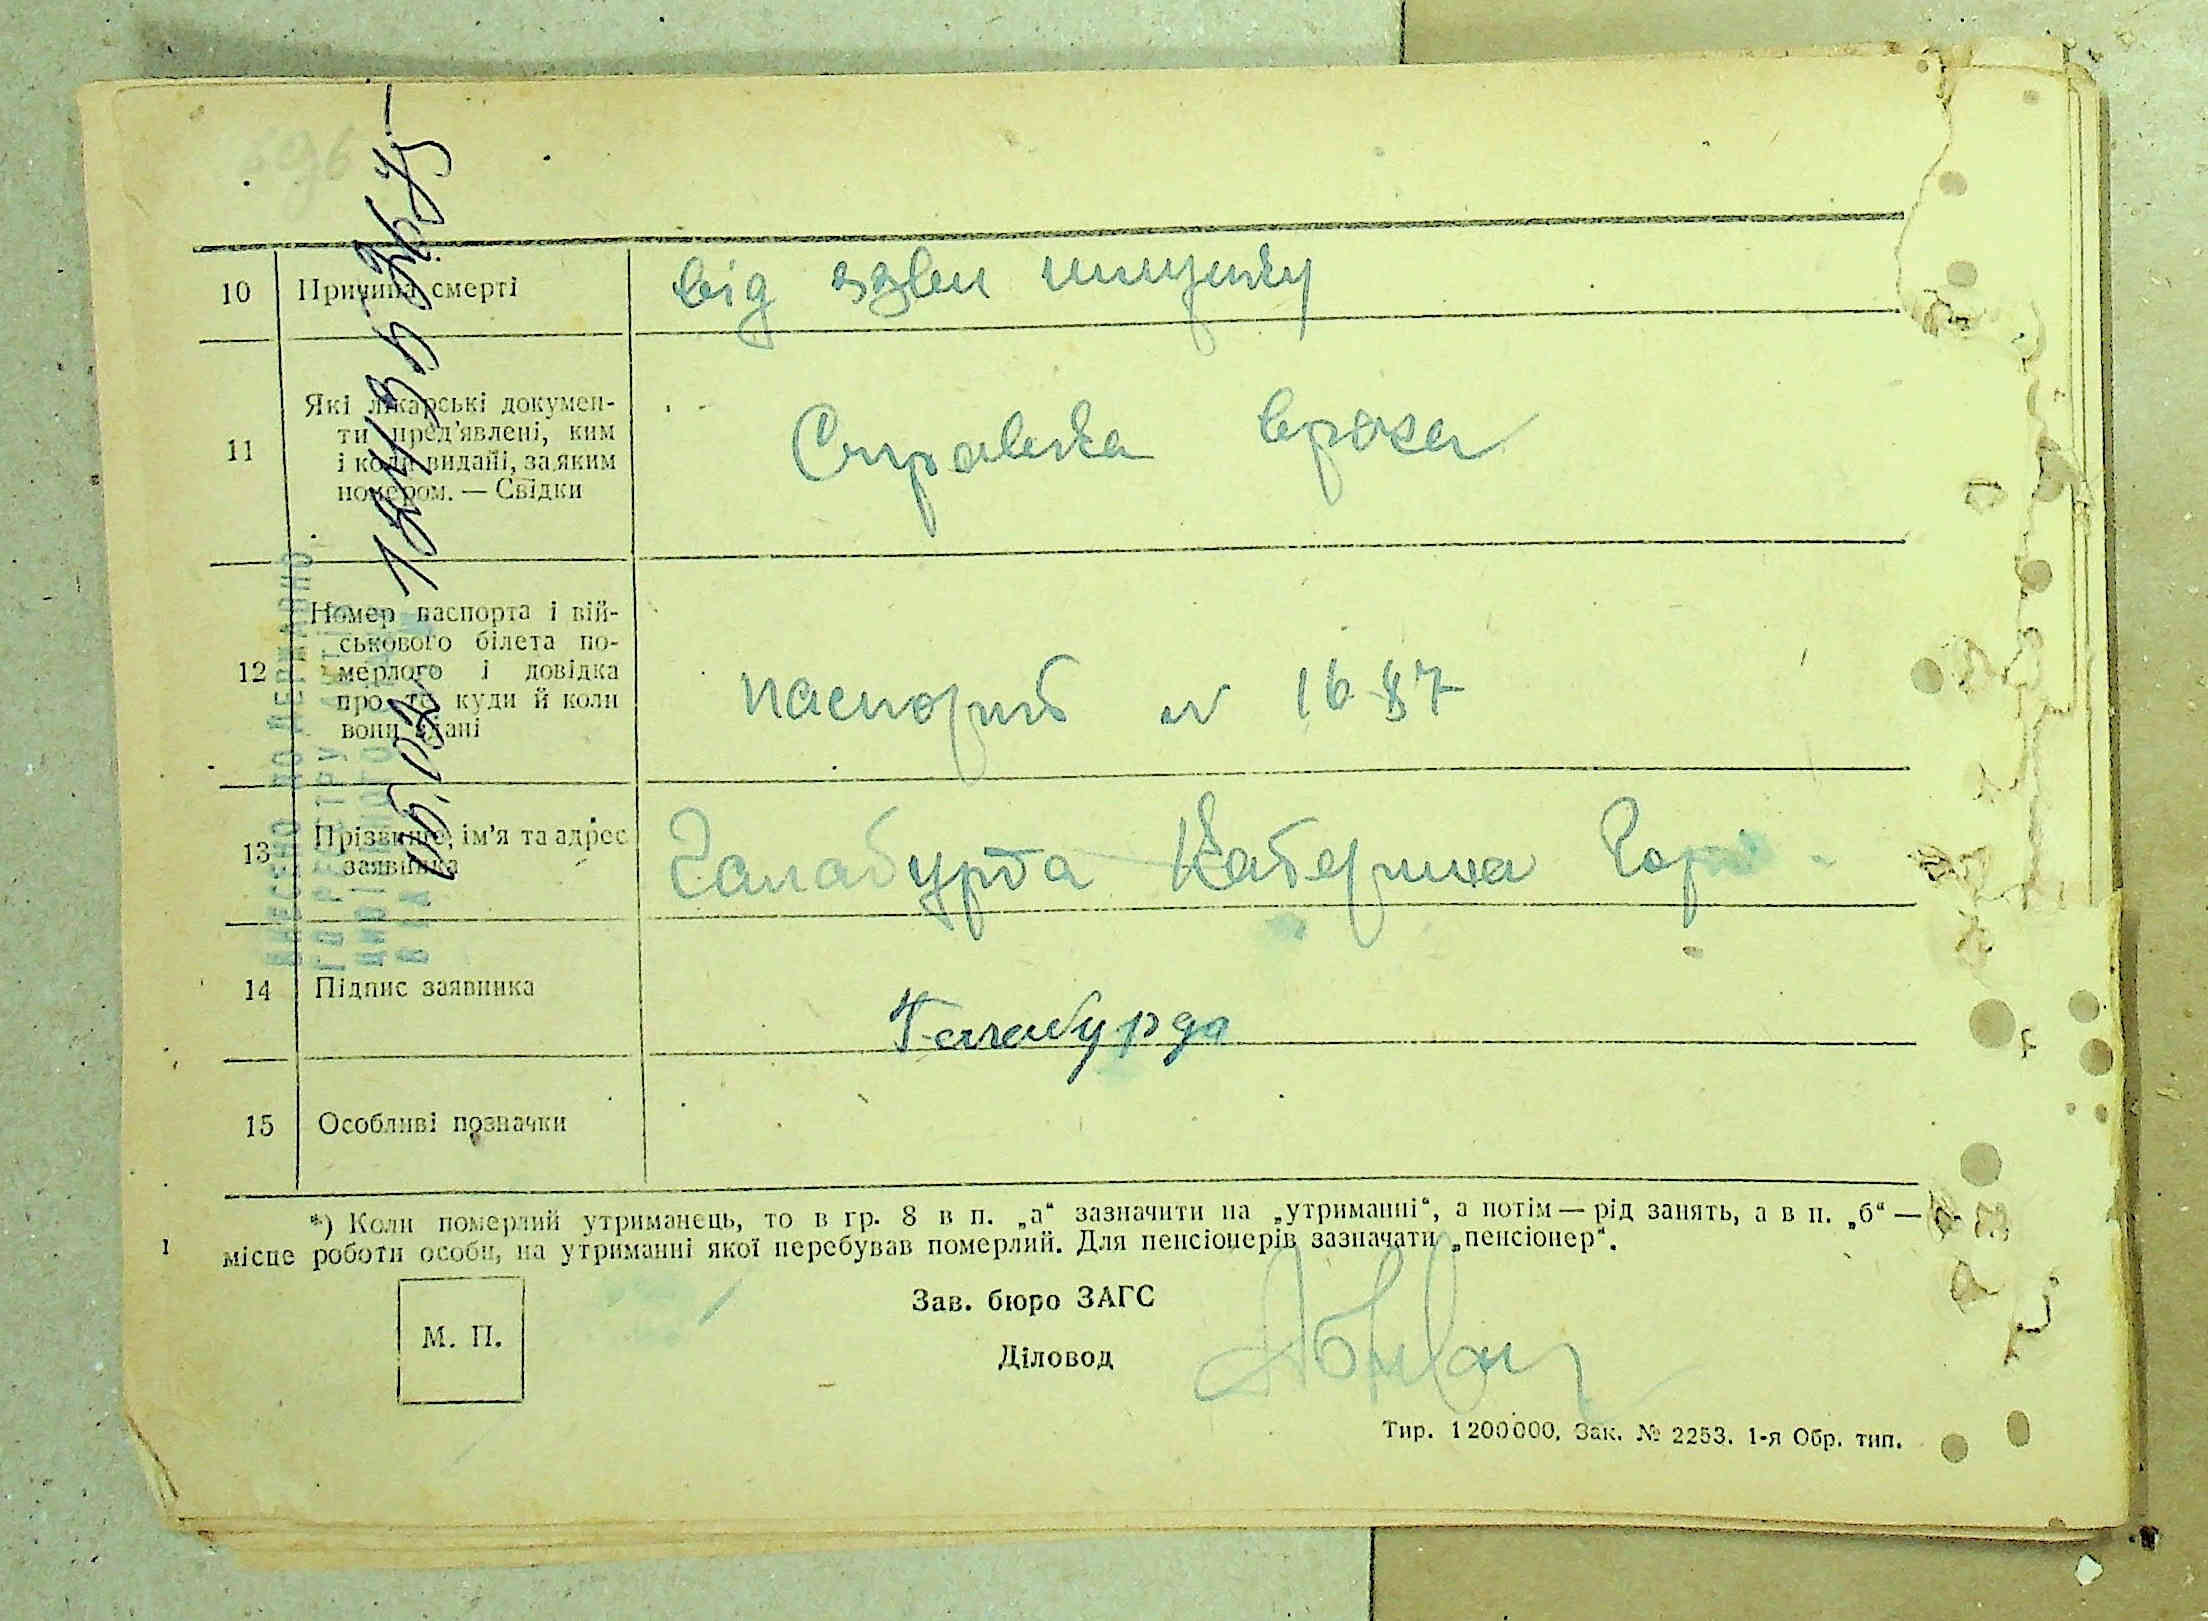 10 Причина смерті від язви шлунку
11 Які лікарські докумен-
ти пред'явлені, ким
і коли видані, за яким
номером. — Свідки
Справка врача
12 Номер паспорта і вій-
ськового білета по-
мерлого і довідка
про те куди й коли
вони здані
паспорт № 1687
13 Прізвище, ім'я та адрес
заявника
Галабурда Катерина
14 Підпис заявника
Галабурда
15 Особливі позначки
*) Коли померлий утриманець, то в гр. 8 в п. „а“ зазначити на „утриманні“, а потім — рід занять, а в п. „б“ —
місце роботи особи, на утриманні якої перебував померлий. Для пенсіонерів зазначати „пенсіонер“.
М. П.
Зав. бюро ЗАГС
Діловод
Тир. 1200000. Зак. № 2253. 1-я Обр. тип.
ВНЕСЕНО ДО ДЕРЖАВНО
ГО РЕЄСТРУ АКТІВ